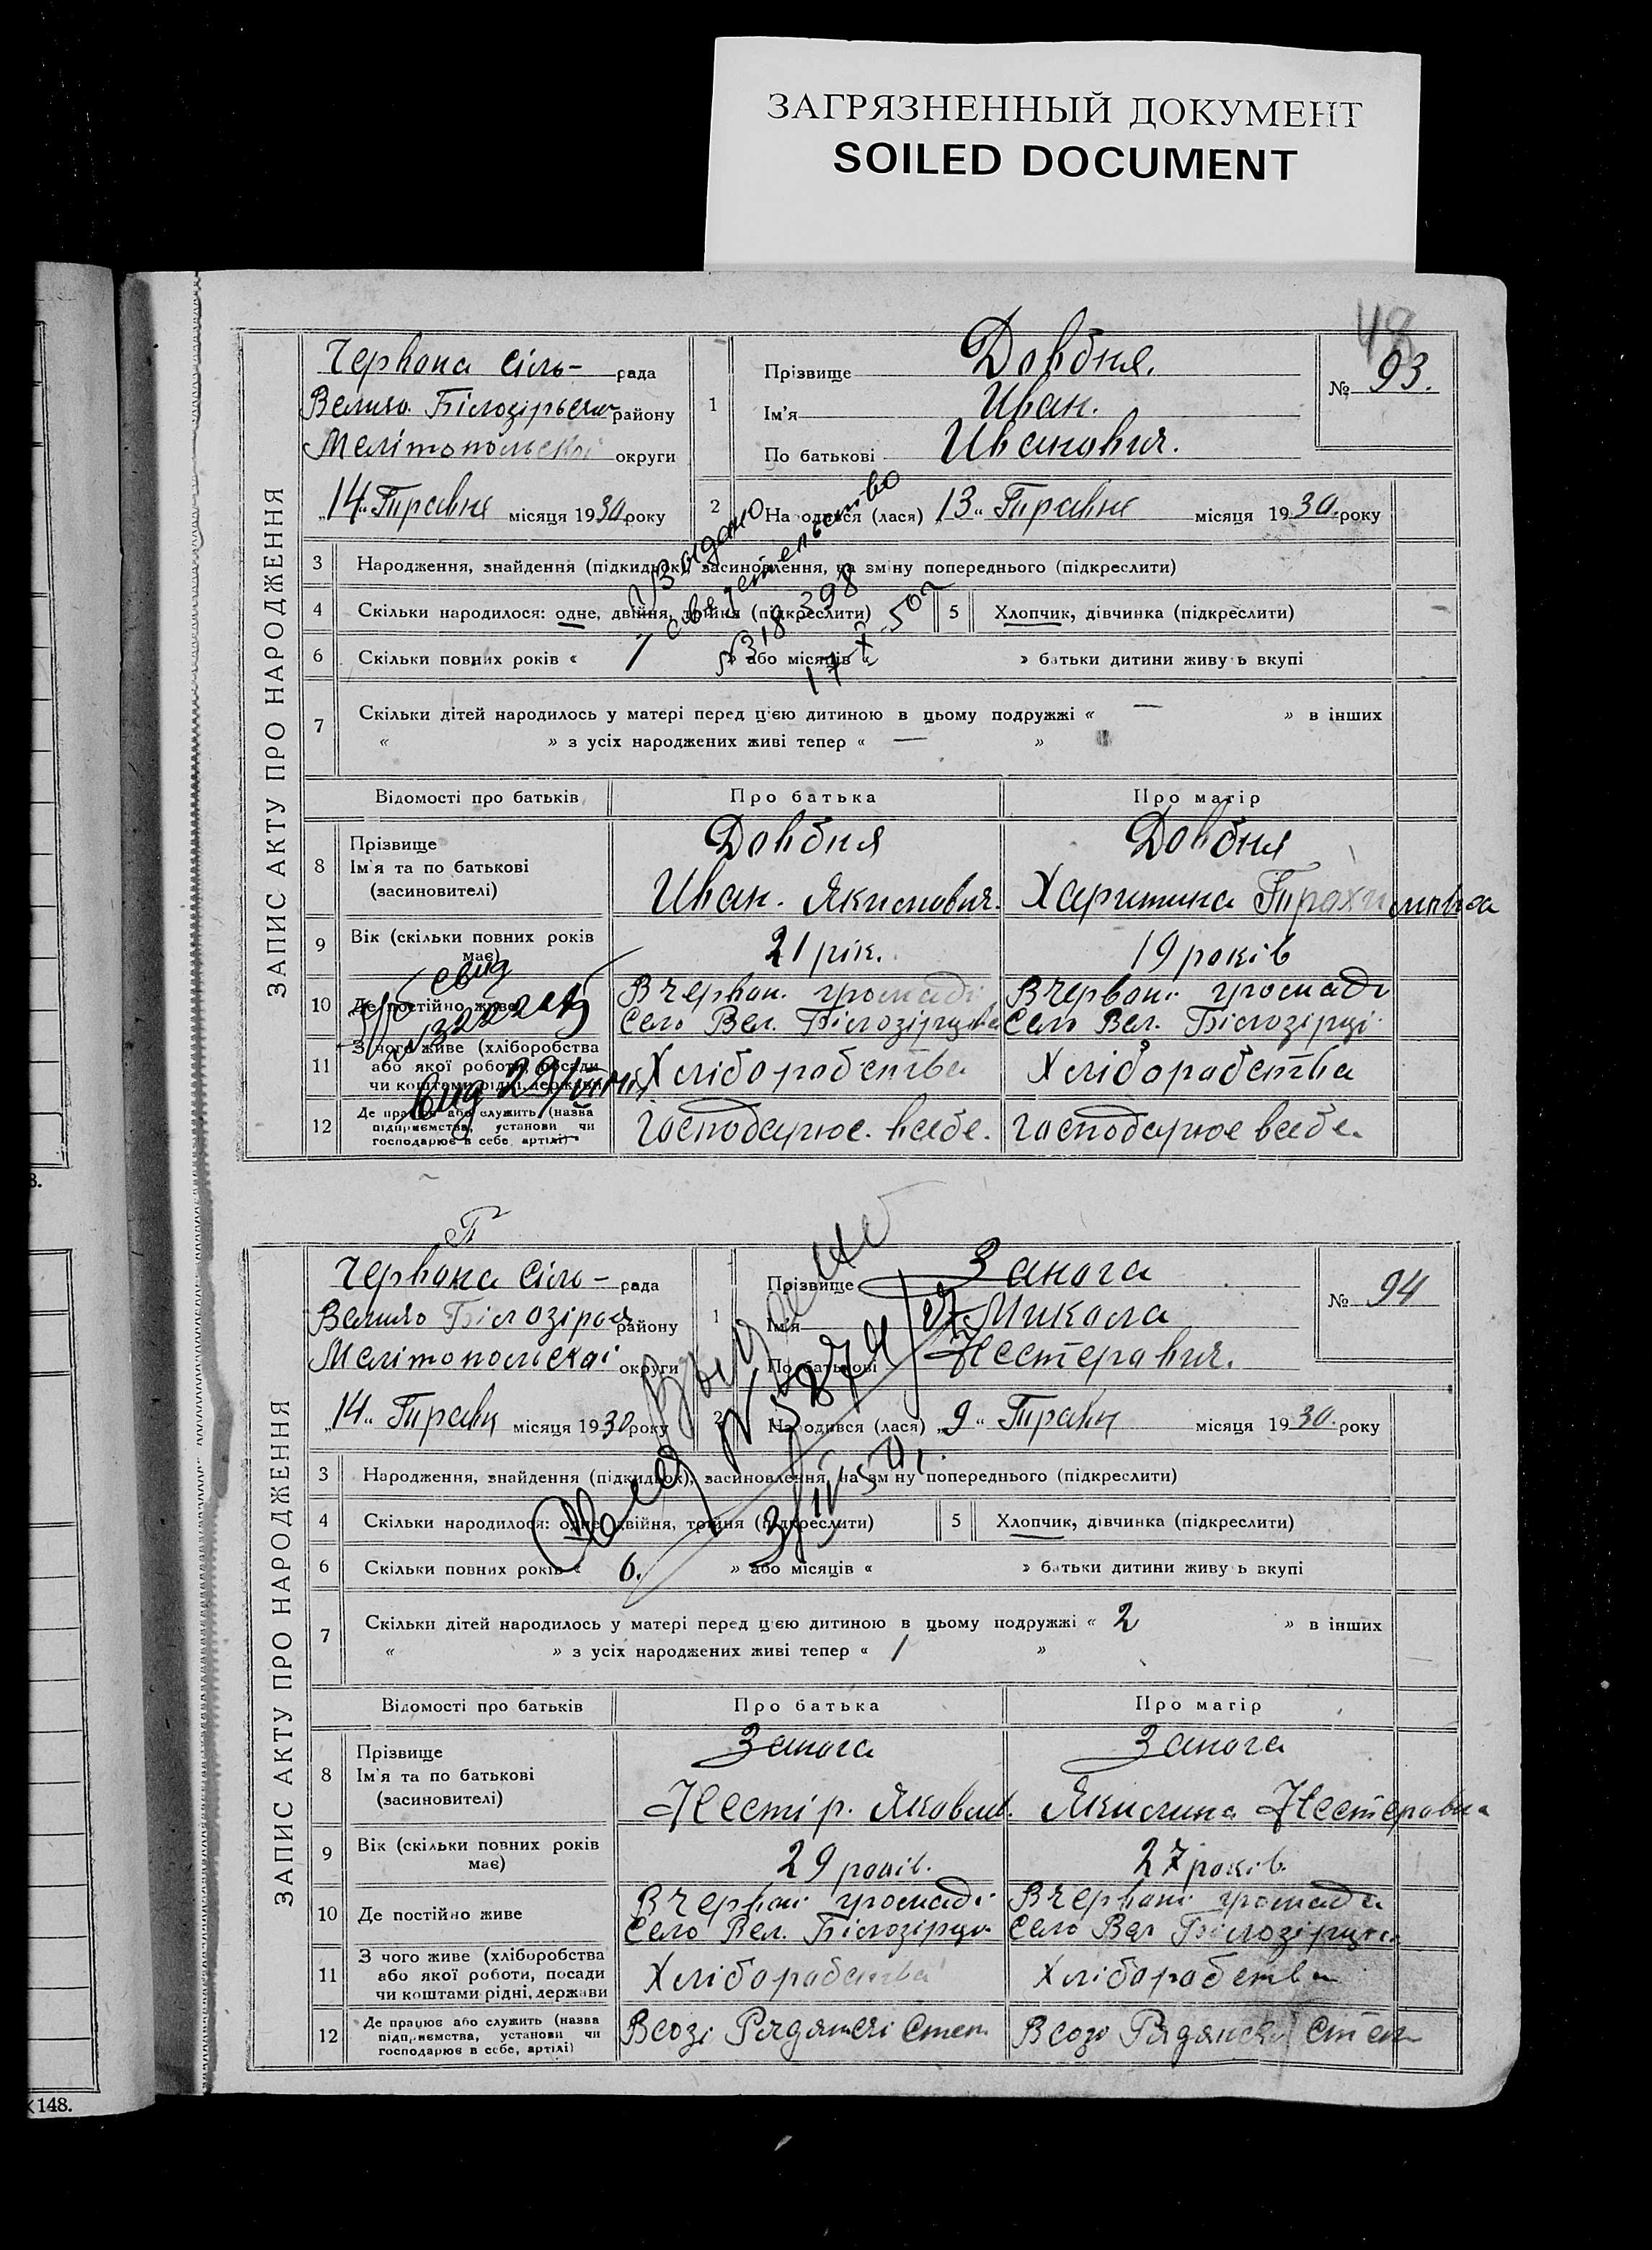 ЗАГРЯЗНЕННЫЙ ДОКУМЕНТ
SOILED DOCUMENT
48
ЗАПИС АКТУ ПРО НАРОДЖЕННЯ
Червона сіль- рада
району
Мелітопольскої округи
„14„ Травня місяця 1930 року
1
Прізвище Довбня.
Ім'я Иван.
По батькові Иванович.
№ 93.
2
Народився (лася) „13„ Травня місяця 1930. року
3 Народження, знайдення (підкидьок), засиновлення, на зміну попереднього (підкреслити)
4 Скільки народилося: одне, двійня, трійня (підкреслити) 5 Хлопчик, дівчинка (підкреслити)
6 Скільки повних років « 1 » або місяців « » батьки дитини живуть вкупі
7 Скільки дітей народилось у матері перед цією дитиною в цьому подружжі « — » в інших
« » з усіх народжених живі тепер « — »
Выдано
сведетельство
Відомості про батьків Про батька Про матір
8 Прізвище
Ім'я та по батькові
(засиновителі)
Довбня
Иван. Якимович.
Довбня
Харитина Трохимовна
9 Вік (скільки повних років має) 21 рік. 19 років
10 Де постійно живе
В Червон. громаді
Село Вел. Білозірка
В Червоні громаді
Село Вел. Білозірці
11 З чого живе (хліборобства
або якої роботи, посади
чи коштами рідні, держави
Хліборобства
Хліборобства
12 Де працює або служить (назва
підприємства, установи чи
господарює в себе, артілі)
Господарює. всебе.
Господарює всебе.
ЗАПИС АКТУ ПРО НАРОДЖЕННЯ
Червона сіль- рада
району
Мелітопольскої округи
„14„ Травн місяця 1930 року
1
Прізвище Занога
Ім'я Микола
По батькові Нестерович.
№ 94
2
Народився (лася) „9„ Травн місяця 1930. року
3 Народження, знайдення (підкидьок), засиновлення, на зміну попереднього (підкреслити)
4 Скільки народилося: одне, двійня, трійня (підкреслити) 5 Хлопчик, дівчинка (підкреслити)
6 Скільки повних років « 6. » або місяців « » батьки дитини живуть вкупі
7 Скільки дітей народилось у матері перед цією дитиною в цьому подружжі « 2 » в інших
« » з усіх народжених живі тепер « 1 »
Відомості про батьків Про батька Про матір
8 Прізвище
Ім'я та по батькові
(засиновителі)
Занога
Нестір. Яковлев.
Занога
Якилина Нестеровна
9 Вік (скільки повних років
має)
29 років.
27 років.
10 Де постійно живе
В Червоні громаді
Село Вел. Білозірци
В Червоні громаді
Село Вел Білозірци
11 З чого живе (хліборобства
або якої роботи, посади
чи коштами рідні, держави
Хліборобства
Хліборобства
12 Де працює або служить (назва
підприємства, установи чи
господарює в себе, артілі)
Всозі Радянскі Степ
Всозі Радянскі Степ
148.